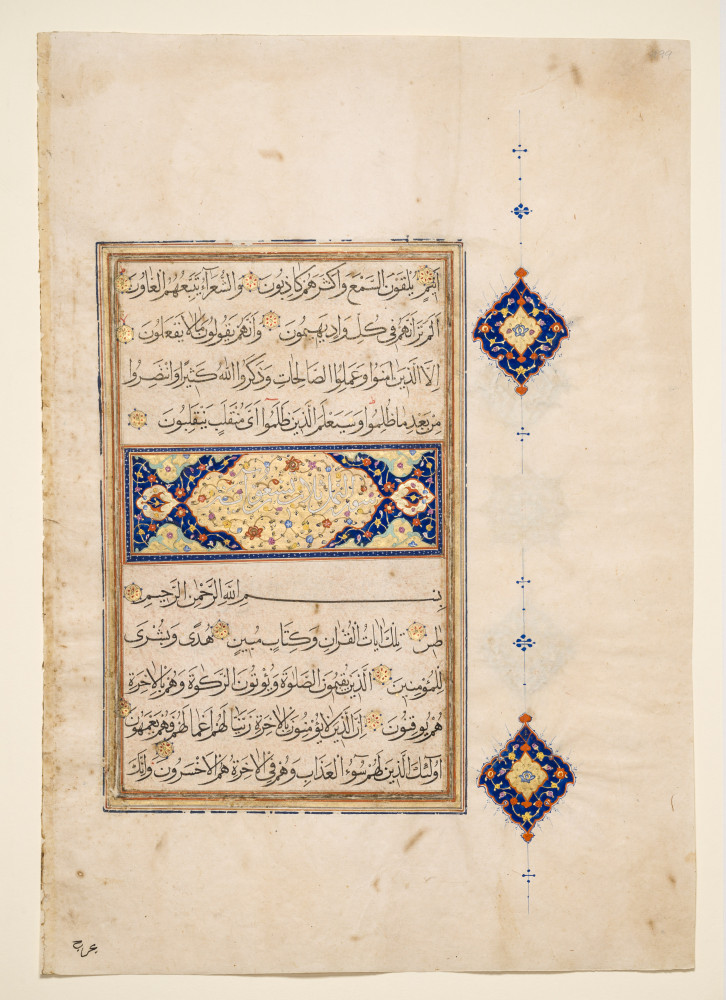 أَثِيمٍ يُلْقُونَ السَّمْعَ وَأَكْثَرُهُمْ كَاذِبُونَ وَالشُّعَرَاءُ يَتَّبِعُهُمُ الْغَاوُنَ
أَلَمْ تَرَ أَنَّهُمْ فِي كُلِّ وَادٍ يَهِيمُونَ وَأَنَّهُمْ يَقُولُونَ مَا لَا يَفْعَلُونَ
إِلَّا الَّذِينَ آمَنُوا وَعَمِلُوا الصَّالِحَاتِ وَذَكَرُوا اللَّهَ كَثِيرًا وَانْتَصَرُوا
مِنْ بَعْدِ مَا ظُلِمُوا وَسَيَعْلَمُ الَّذِينَ ظَلَمُوا أَيَّ مُنْقَلَبٍ يَنْقَلِبُونَ
بِسْمِ اللَّهِ الرَّحْمَنِ الرَّحِيمِ
طس تِلْكَ آيَاتُ الْقُرْآنِ وَكِتَابٍ مُبِينٍ هُدًى وَبُشْرَى
لِلْمُؤْمِنِينَ الَّذِينَ يُقِيمُونَ الصَّلَوةَ وَيُؤْتُونَ الزَّكَوةَ وَهُمْ بِالْآخِرَةِ
هُمْ يُوقِنُونَ إِنَّ الَّذِينَ لَا يُؤْمِنُونَ بِالْآخِرَةِ زَيَّنَّا لَهُمْ أَعْمَالَهُمْ فَهُمْ يَعْمَهُونَ
أُولَئِكَ الَّذِينَ لَهُمْ سُوءُ الْعَذَابِ وَهُمْ فِي الْآخِرَةِ هُمُ الْأَخْسَرُونَ وَإِنَّكَ